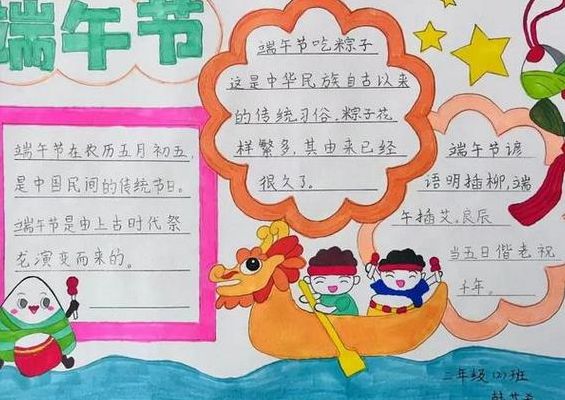 端午节
端午节在农历五月初五,
是中国民间的传统节日。
端午节是由上古时代祭
龙演变而来的。
端午节吃粽子
这是中华民族自古以来
的传统习俗,粽子花
样繁多,其由来已经
很久了。
端午节谚
语明插柳,端
午插艾,良辰
当五日偕老祝
千年。
三年级(2)班